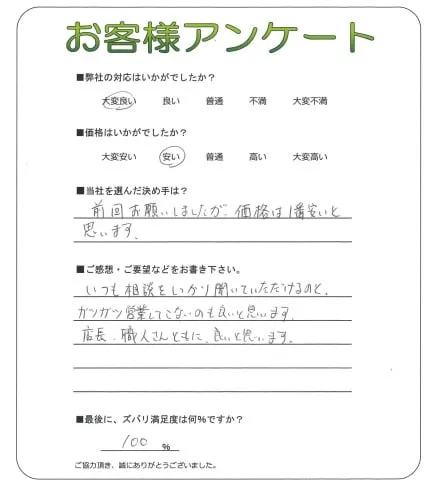 お客様アンケート
■弊社の対応はいかがでしたか？
大変良い 良い 普通 不満 大変不満
■価格はいかがでしたか？
大変安い 安い 普通 高い 大変高い
■当社を選んだ決め手は？
前回お願いしましたが、価格は1番安いと
思います。
■ご感想・ご要望などをお書き下さい。
いつも相談をしっかり聞いていただけるのと、
ガツガツ営業してこないのも良いと思います。
店長、職人さんともに、良いと思います。
■最後に、ズバリ満足度は何%ですか？
100 %
ご協力頂き、誠にありがとうございました。